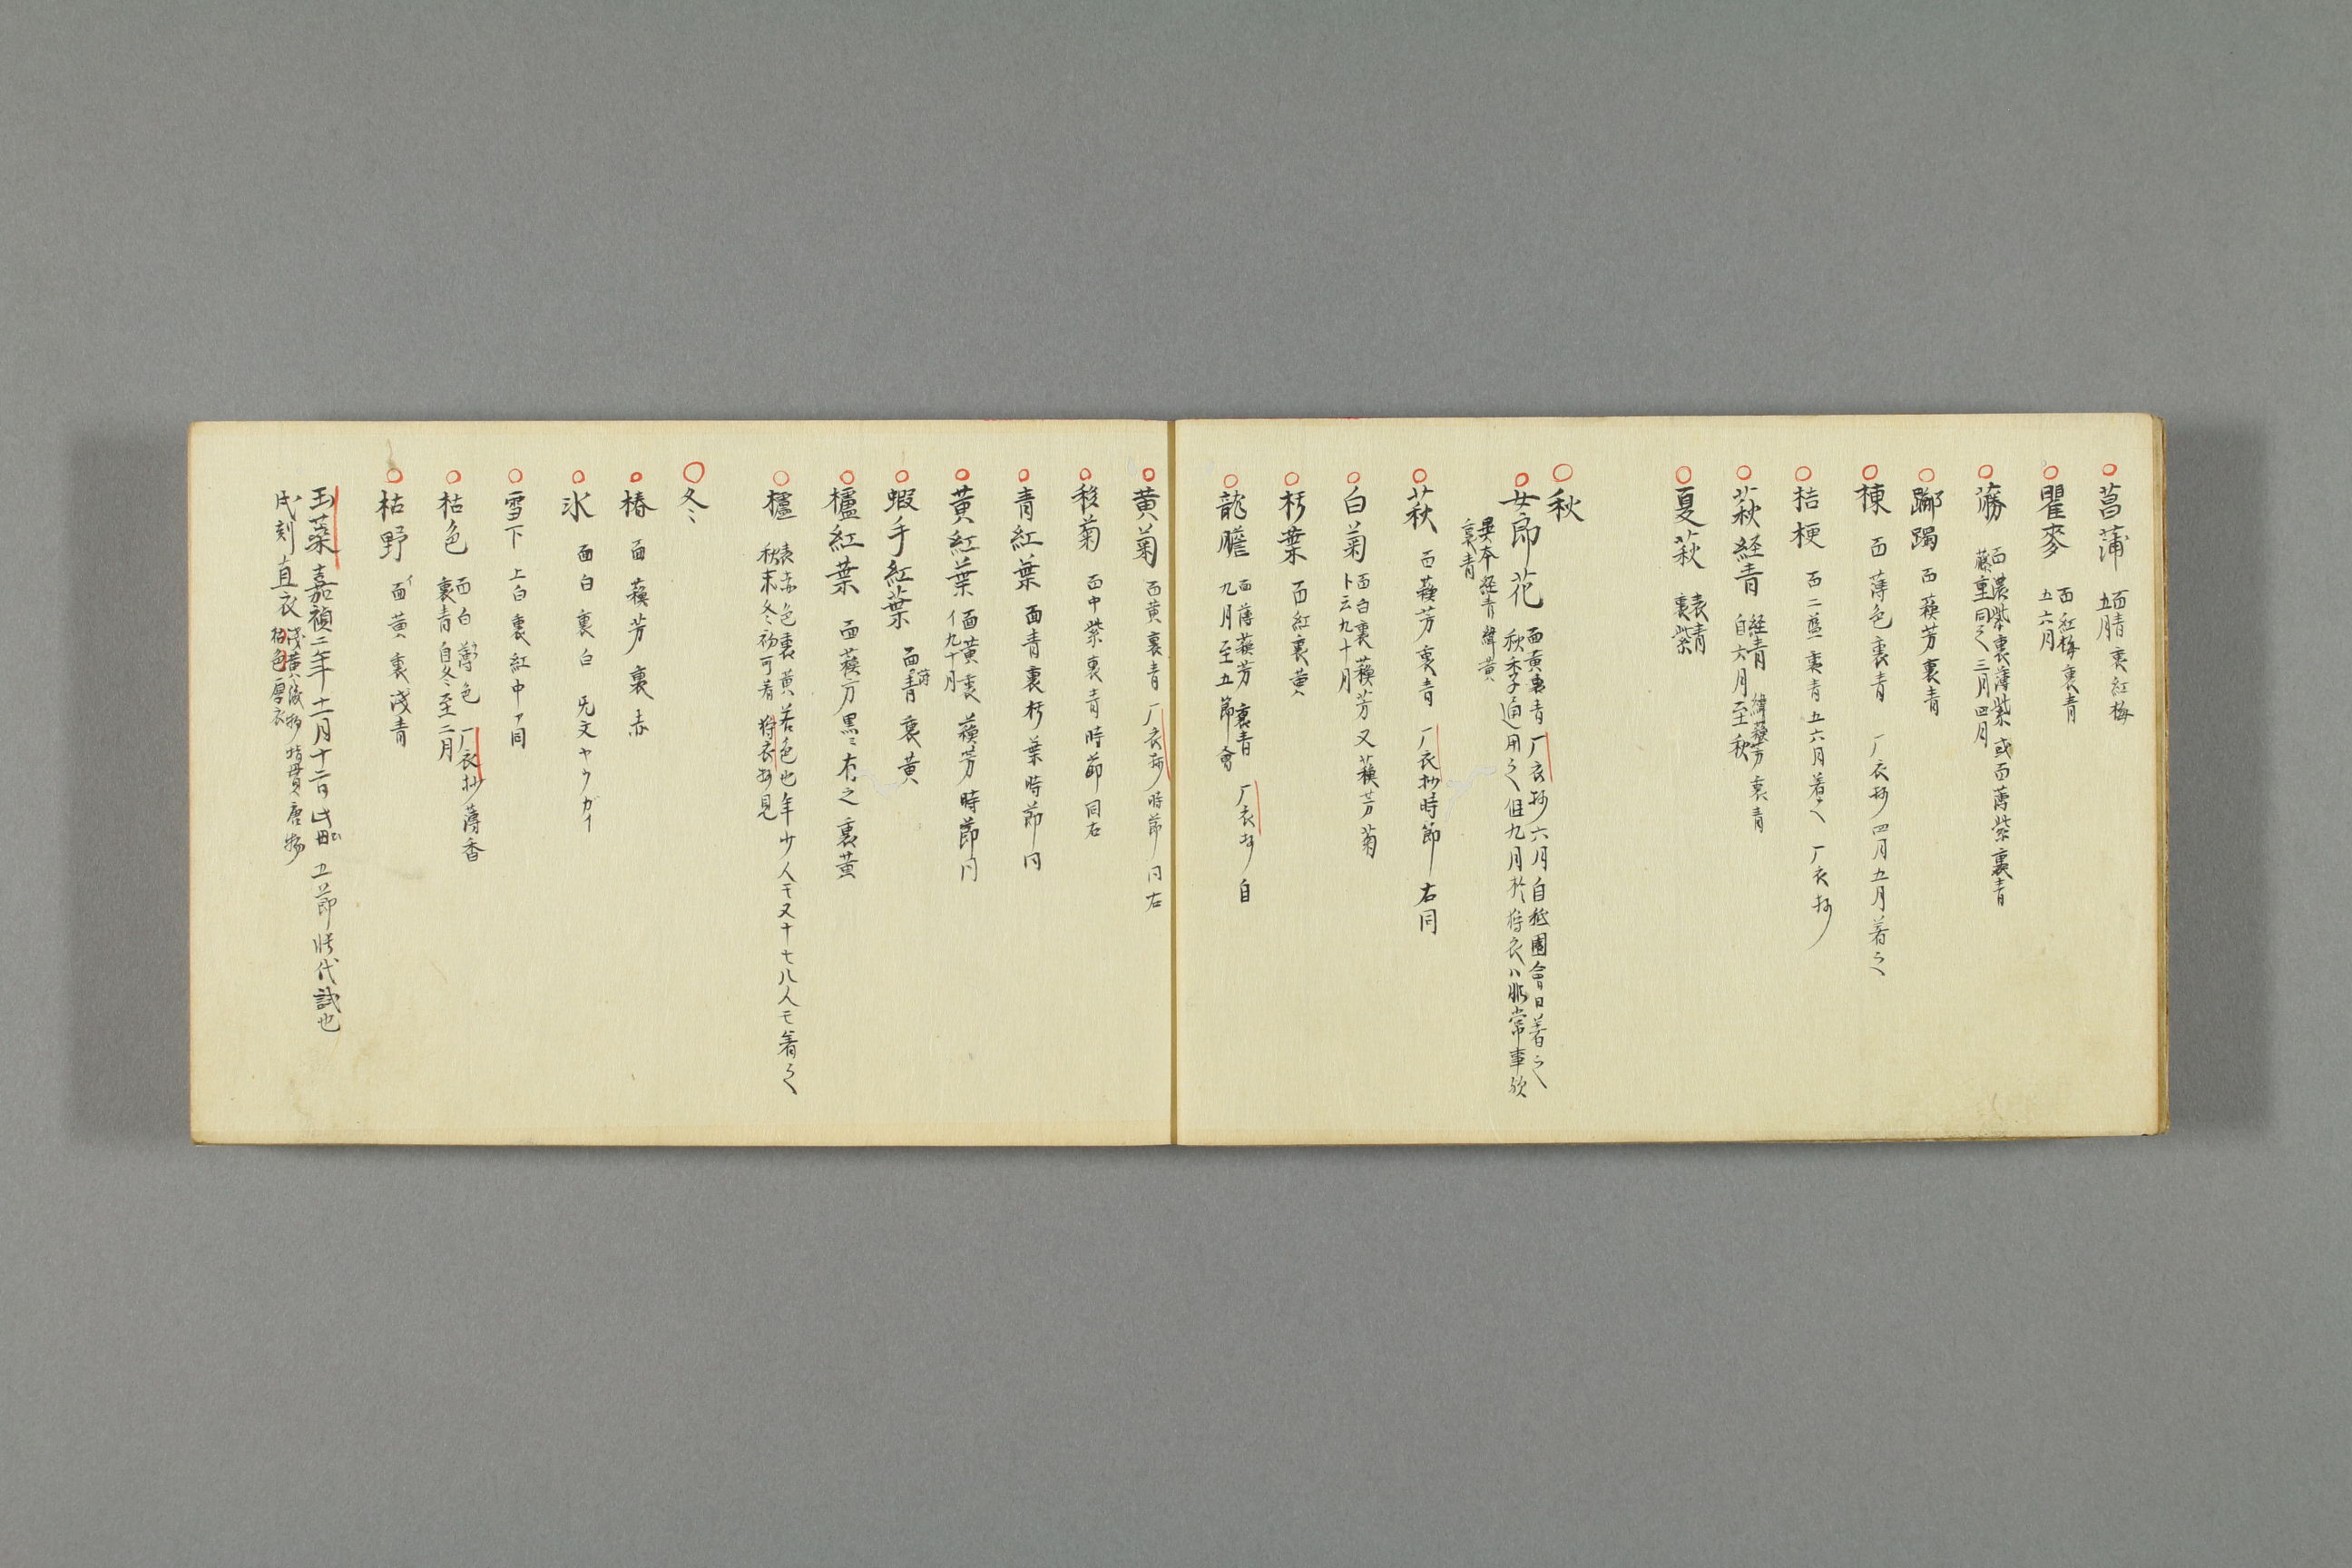 菖蒲 面青 裏紅梅
五月
瞿麥 面紅梅 裏青
五六月
藤 面濃紫裏薄紫 或面薄紫裏青
藤重同之 三月四月
躑躅 面蘓芳裏青
楝 面薄色裏青 厂衣抄四月五月着之
桔梗 面二藍裏青五六月着之 厂衣抄
萩経青 経青 緯蘓芳 裏青
自六月至秋
夏萩 表青
裏紫
秋
女郎花 面黄裏青厂衣抄六月自祗園會日着之
秋季通用之但九月於狩衣ハ非常事欤
異本経青緯黄
裏青
萩 面蘓芳裏青 厂衣抄時節右同
白菊 面白裏蘓芳又蘓芳菊
卜云九十月
朽葉 面紅裏黄
龍膽 面薄蘓芳 裏青 厂衣抄自
九月至五節會
黄菊 面黄裏青厂衣抄時節同右
移菊 面中紫裏青時節同右
青紅葉 面青裏朽葉時節同
黄紅葉 面黄裏蘓芳時節同
イ九十月
蝦手紅葉 面薄青裏黄
櫨紅葉 面蘓方黒ミ有之裏黄
櫨 表赤色裏黄若色也年少人モ又十七八人モ着之
秋末冬初可着狩衣抄見
冬
椿 面蘓芳裏赤
氷 面白裏白 无文ヤウガイ
雪下 上白裏紅中ア同
枯色 面白 薄色 厂衣抄薄香
裏青自冬至二月
枯野 面黄裏浅青
玉蘂嘉禎二年十一月十二日 此 五節帳代試也
戌刻直衣 浅黄 指貫唐物
枯色厚衣